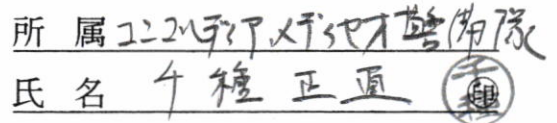 所属 コンコルディアメディセオ警備隊
氏名 千種 正直 ㊞ 千種